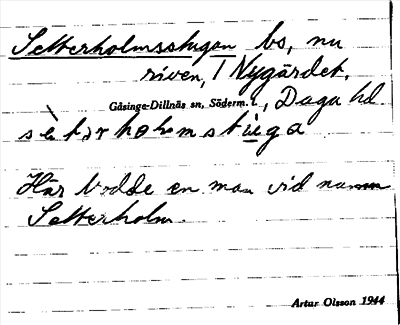 Setterholmsstugan bs, nu
riven, T Nygärdet.
Gåsinge-Dillnäs sn, Söderm. l., Daga hd
sètərhɷlmstùga
Här bodde en man vid namn
Setterholm.
Artur Olsson 1944